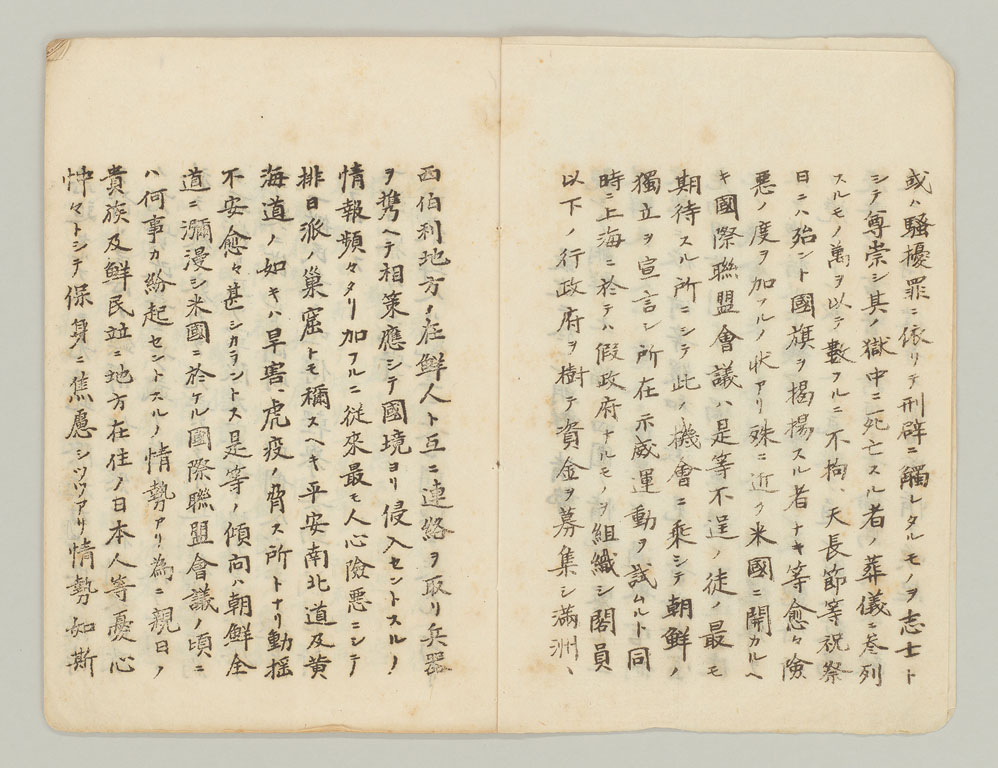 或ハ騷擾罪ニ依リテ刑辟ニ觸レタルモノヲ志士ト
シテ尊崇シ其ノ獄中ニ死亡スル者ノ葬儀ニ叅列
スルモノ萬ヲ以テ數フルニ不拘、天長節等祝祭
日ニハ殆ント國旗ヲ揭揚スル者ナキ等愈々險
悪ノ度ヲ加フルノ状アリ殊ニ近ク米國ニ開カルヘ
キ國際聯盟會議ハ是等不逞ノ徒ノ最モ
期待スル所ニシテ此ノ機會ニ乘シテ朝鮮ノ
獨立ヲ宣言シ所在示威運動ヲ試ムルト同
時ニ上海ニ於テハ假政府ナルモノヲ組織シ閣員
以下ノ行政府ヲ樹テ資金ヲ募集シ滿洲、
西伯利地方ノ在鮮人ト互ニ連絡ヲ取リ兵器
ヲ携ヘテ相策應シテ國境ヨリ侵入セントスルノ
情報頻々タリ加フルニ從來最モ人心險悪ニシテ
排日派ノ巢窟トモ稱スヘキ平安南北道及黄
海道ノ如キハ旱害、虎疫ノ脅ス所トナリ動揺
不安愈々甚シカラントス是等ノ傾向ハ朝鮮全
道ニ瀰漫シ米國ニ於ケル國際聯盟會議ノ頃ニ
ハ何事カ紛起セントスルノ情勢アリ為ニ親日ノ
貴族及鮮民竝ニ地方在住ノ日本人等憂心
忡々トシテ保身ニ焦慮シツツアリ情勢如斯